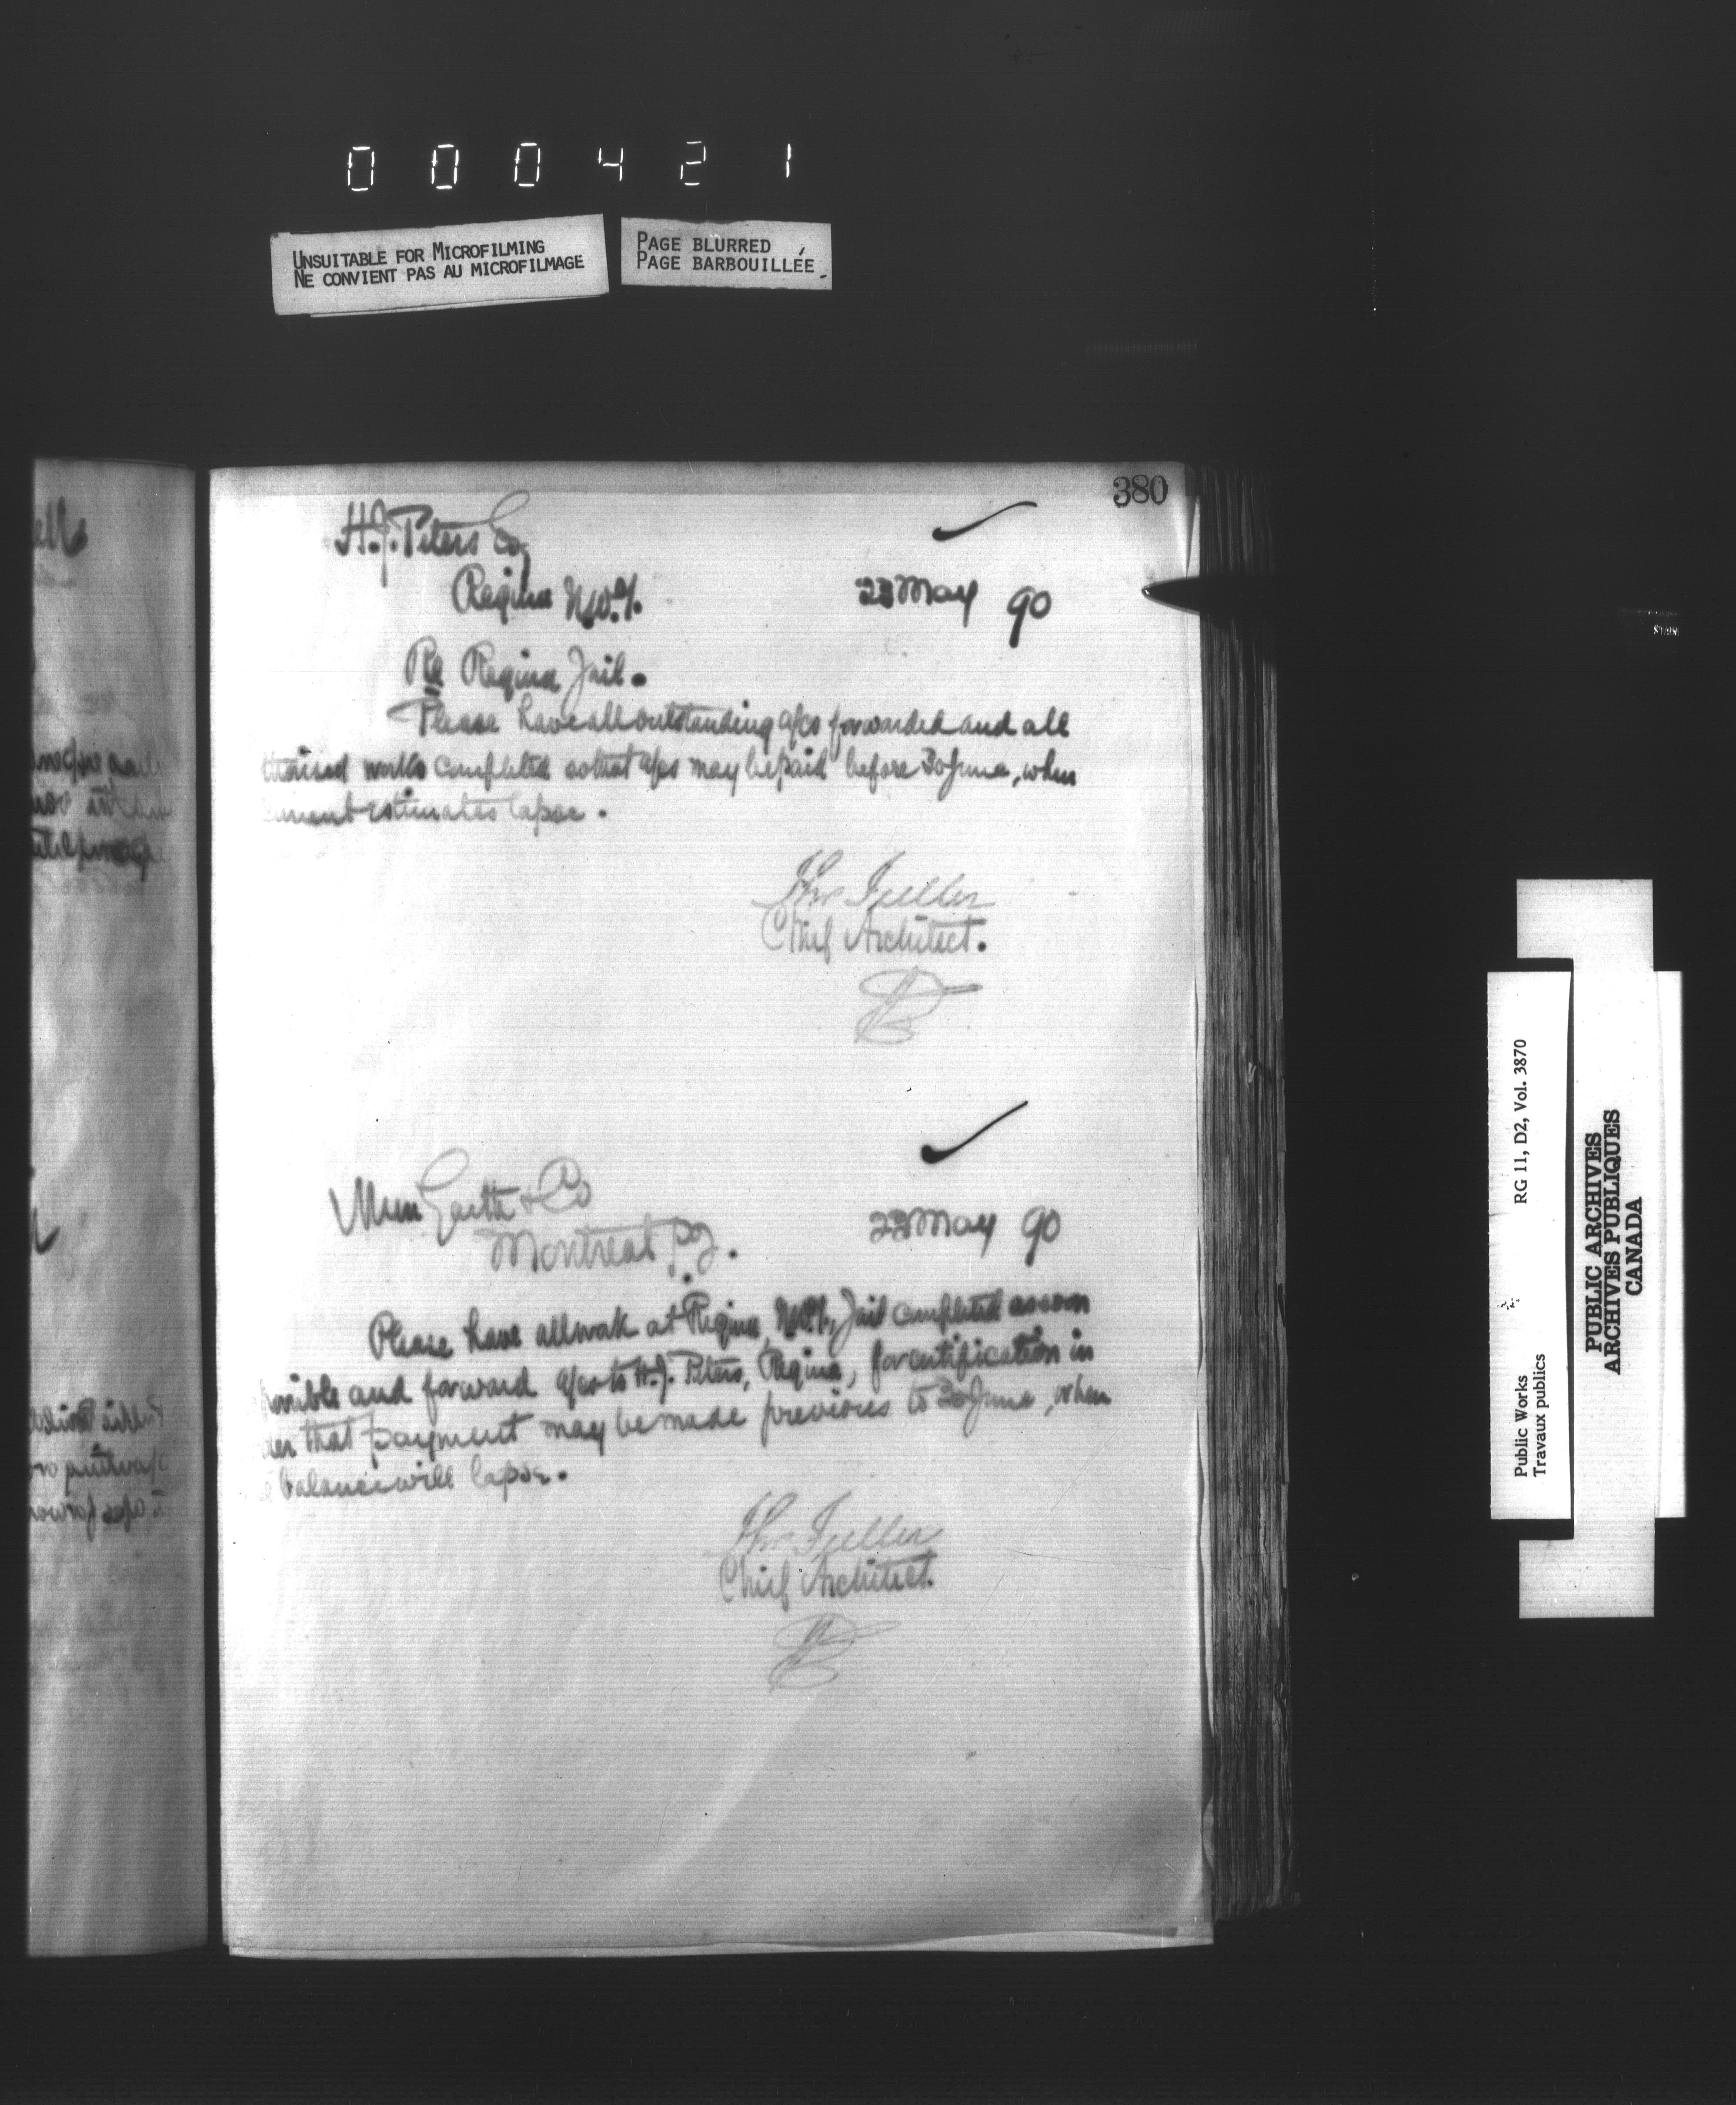 000421
UNSUITABLE FOR MICROFILMING
NE CONVIENT PAS AU MICROFILMAGE
PAGE BLURRED
PAGE BARBOUILLÉE
380
H.J. Peters
Regina N.W.T.
23 May 90
Re Regina Jail.
Please have all outstanding a/cs forwarded and all
works completed so that a/cs may be paid before 30 June, when
estimates lapse.
Thos Fuller
Chief Architect.
Garth & Co
Montreal P.Q.
23 May 90
Please have all work at Regina, N.W.T., Jail completed as soon
possible and forward a/cs to H.J. Peters, Regina, for certification in
that payment may be made previous to 30 June, when
balance will lapse.
Thos Fuller
Chief Architect.
Public Works
Travaux publics
RG 11, D2, Vol. 3870
PUBLIC ARCHIVES
ARCHIVES PUBLIQUES
CANADA